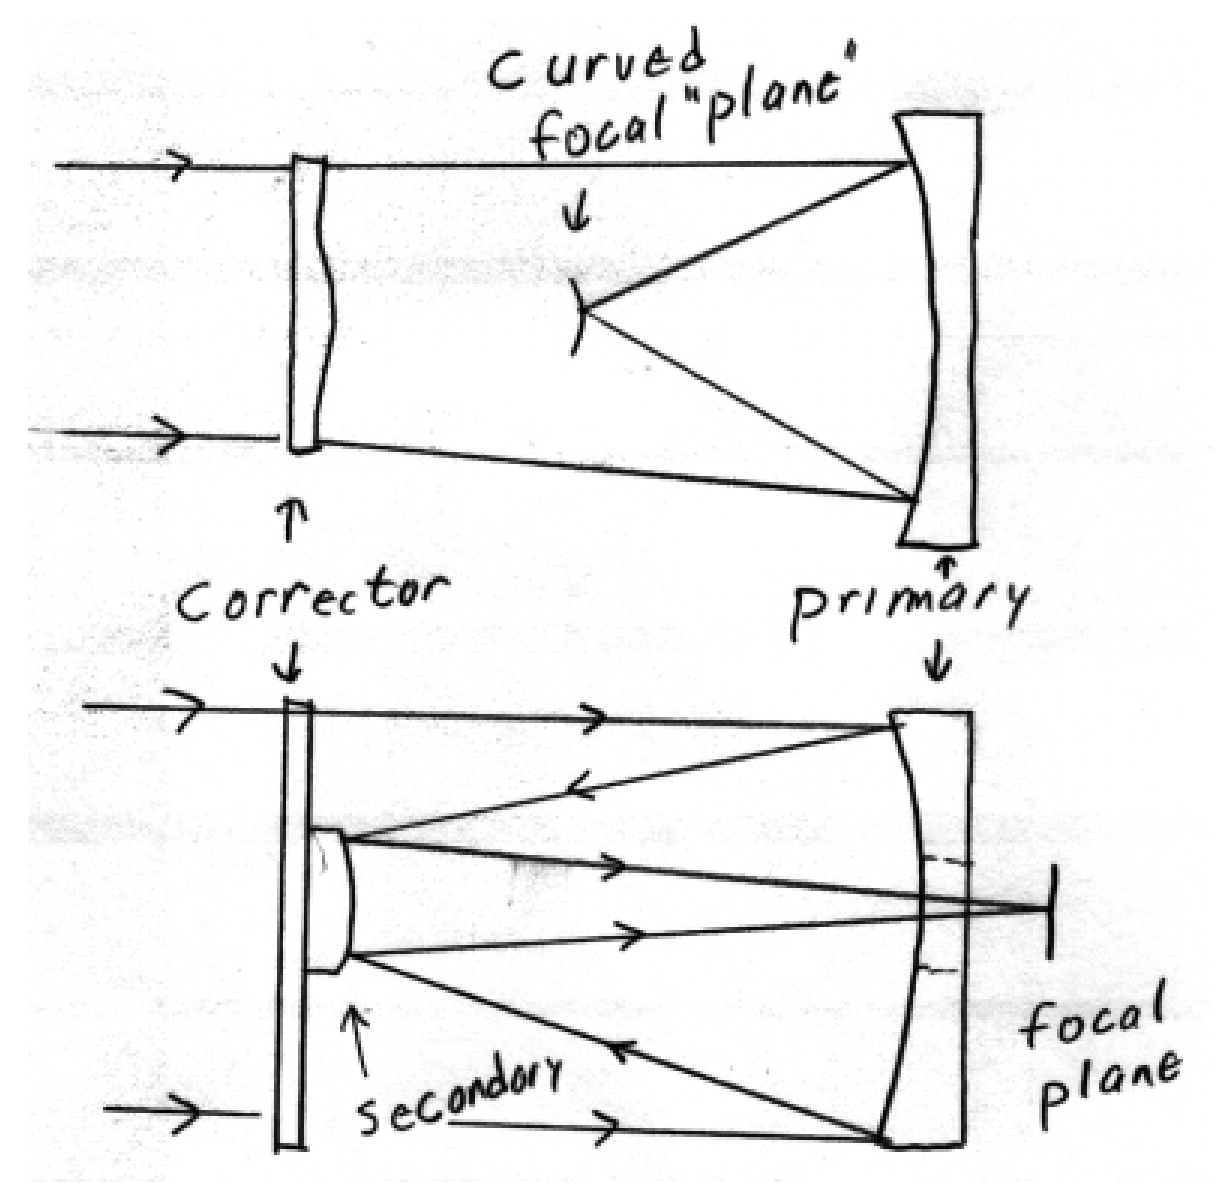 Curved
focal "plane"
Corrector
primary
Secondary
focal
plane